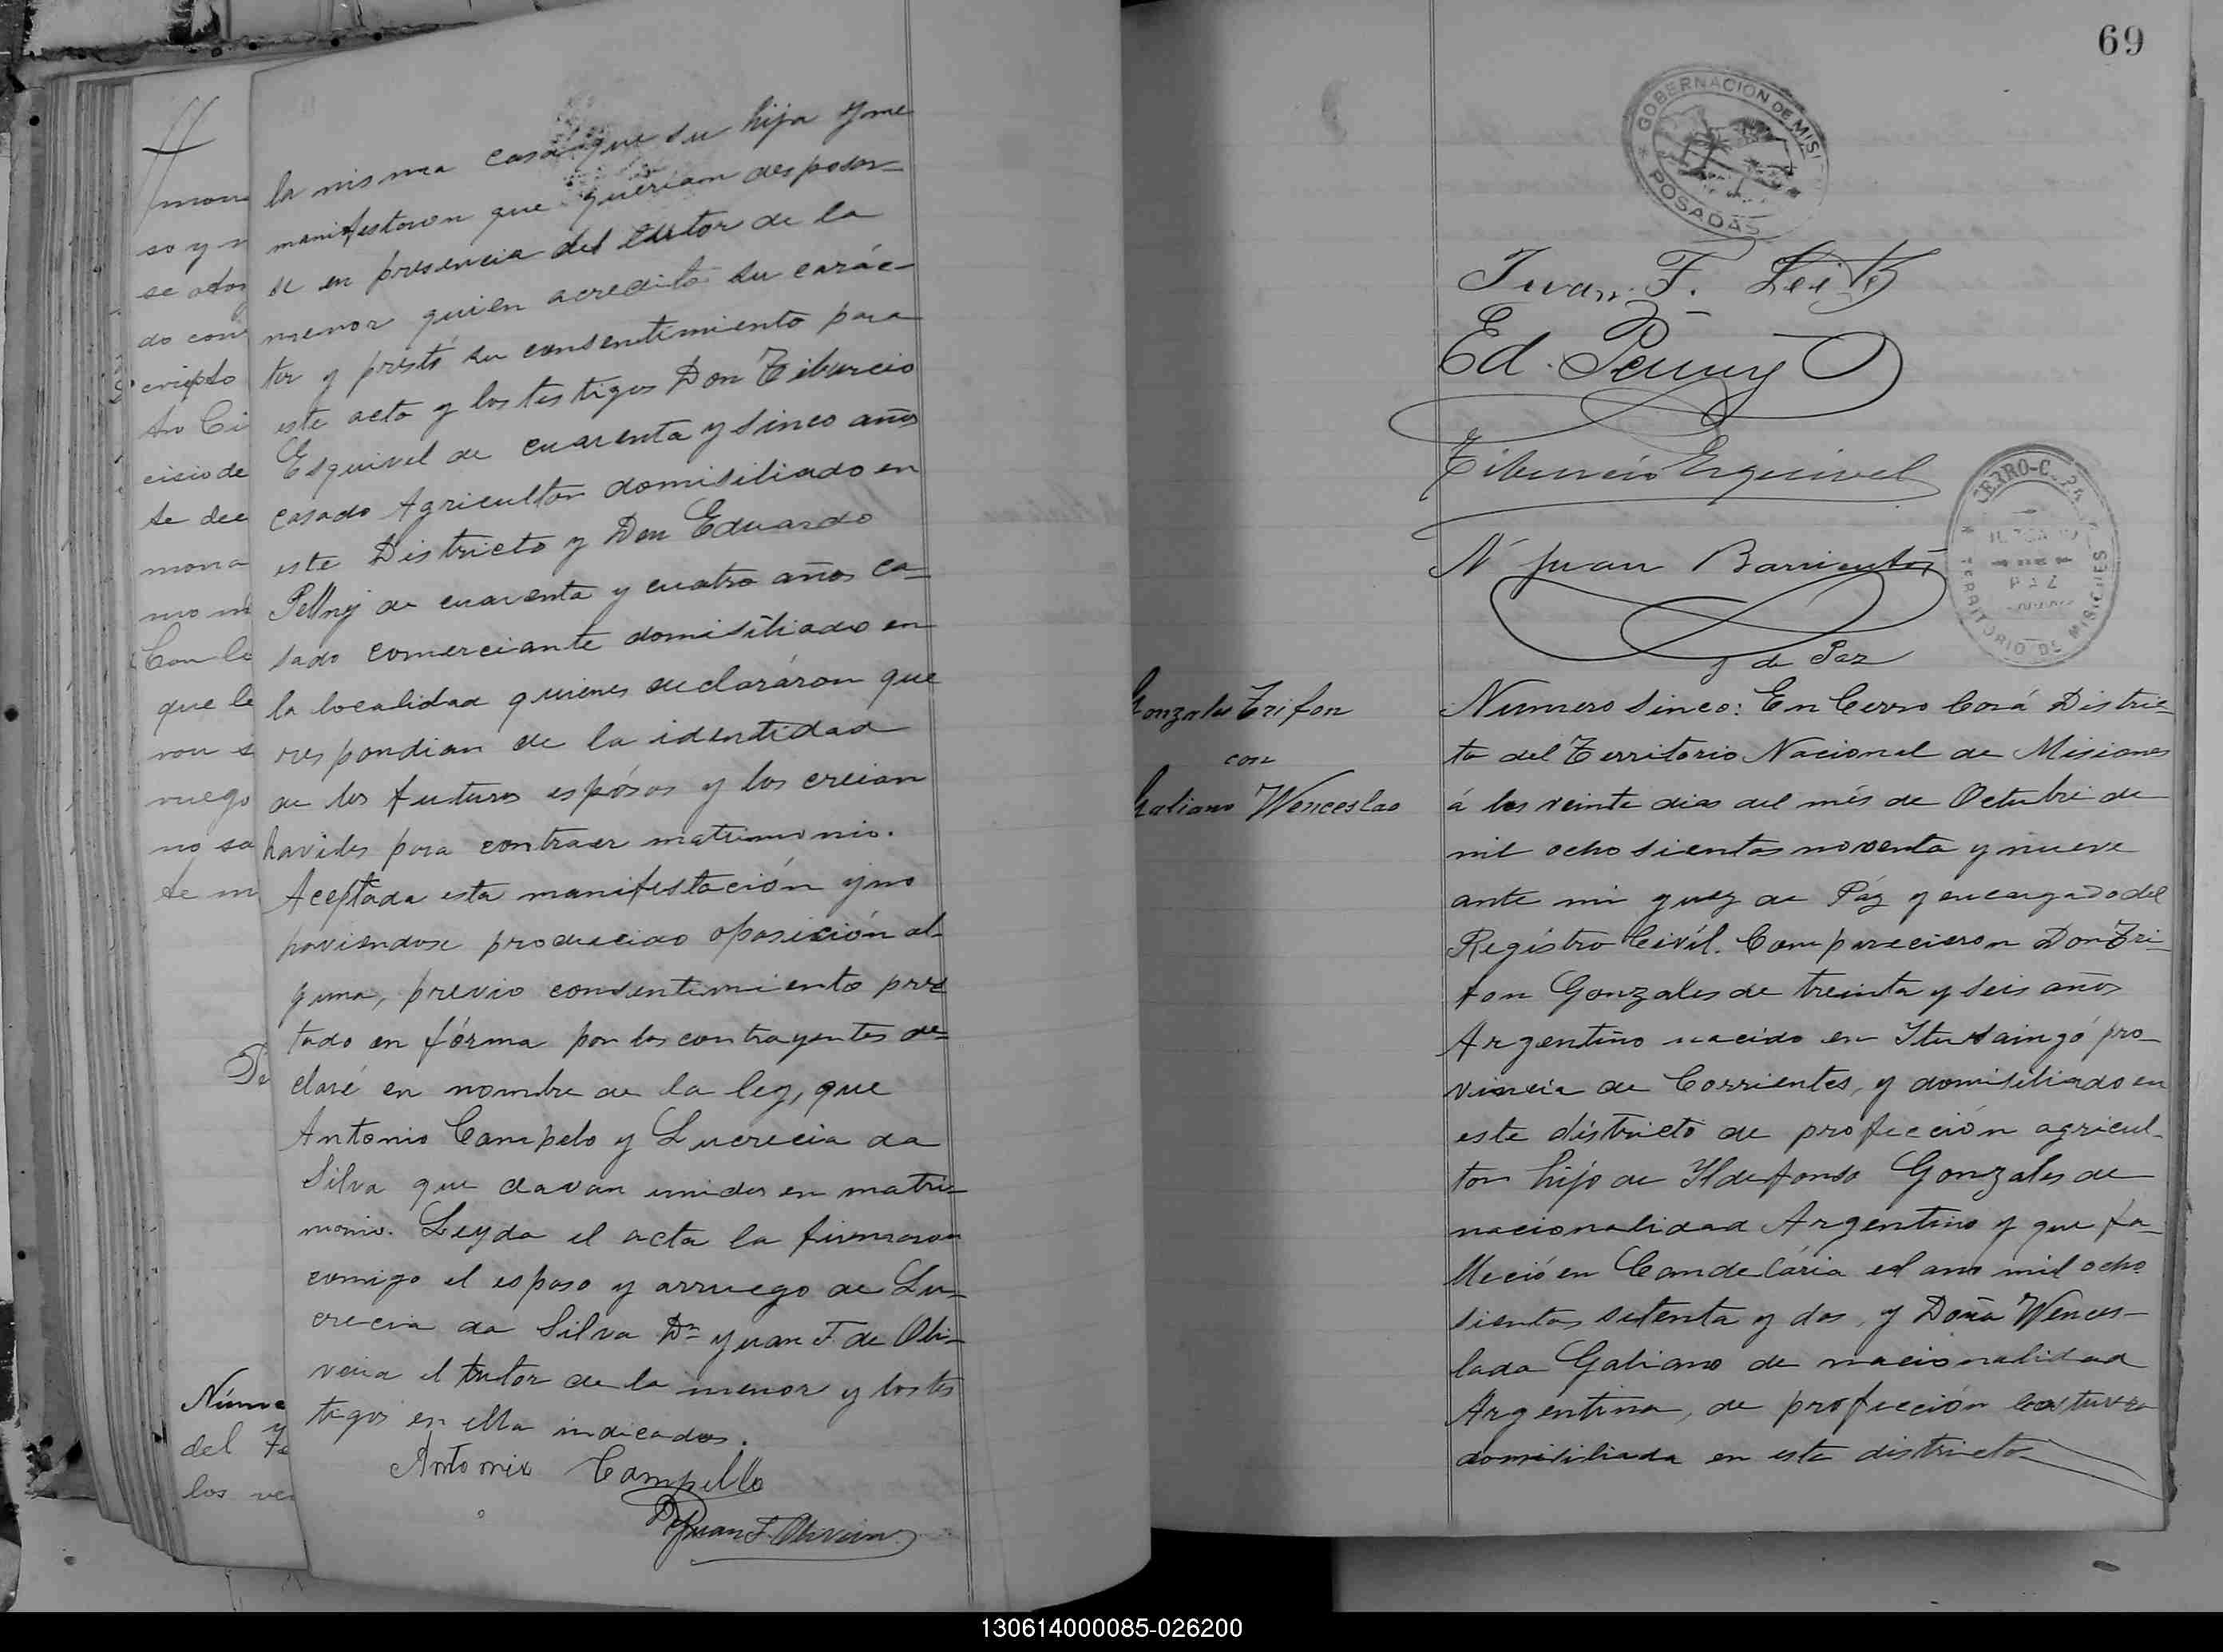 la misma casa que su hija y me
manifestaron que querian desposar-
se en presencia del tutor de la
menor quien acreditó su carác-
ter y prestó su consentimiento para
este acto y los testigos Don Tiburcio
Esquivel de cuarenta y sinco años
casado Agricultor domisiliado en
este Districto y Don Eduardo
de cuarenta y cuatro años ca-
sado comerciante domisiliado en
la localidad quienes declaráron que
respondian de la identidad
de los futuros espósos y los creian
haviles para contraer matrimonio.
Aceptada esta manifestación y no
haviendose producido oposición al-
guna, previo consentimiento pres
tado en fórma por los contrayentes de-
claré en nombre de la ley, que
Antonio Campelo y Lucrecia da
Silva que davan unidos en matri-
monio. Leyda el acta la firmaron
comigo el esposo y arruego de Lu-
crecia da Silva Dn Yuan F. de Oli-
veira el tutor de la menor y los tes
tigos en ella indicados.
Antonio Campello
Juan F. Oliveira
mon
so y
se
do con
cripto
tro Ci
cisio de
te dec
mona
mo m
Con la
que le
ron
ruego
no sa
te m
De
Núme
del
los ve
69
GOBERNACION DE MISI
POSADAS
Juan F.
Ed. Penny
Tiburcio Esquivel
N Juan Barrientos
J de Paz
CERRO-C
PAZ
TERRITORIO DE MISIONES
Gonzales Trifon
con
Galiano Wenceslao
Numero sinco: En Cerro Corá Distric-
to del Territorio Nacional de Misiones
á los veinte dias del més de Octubre de
mil ocho sientos noventa y nueve
ante mi yuez de Páz y encargado del
Registro Civíl. Comparecieron Don Tri-
fon Gonzales de treinta y seis años
Argentino nacido en Itusaingó pro-
vincia de Corrientes, y domisiliado en
este districto de profección agricul-
tor hijo de Ildefonso Gonzales de
nacionalidad Argentino y que fa-
lleció en Candelária el ano mil ocho
sientos setenta y dos, y Doña Wences-
lada Galiano de nacionalidad
Argentina, de profección costurera
domisiliada en este districto
130614000085-026200